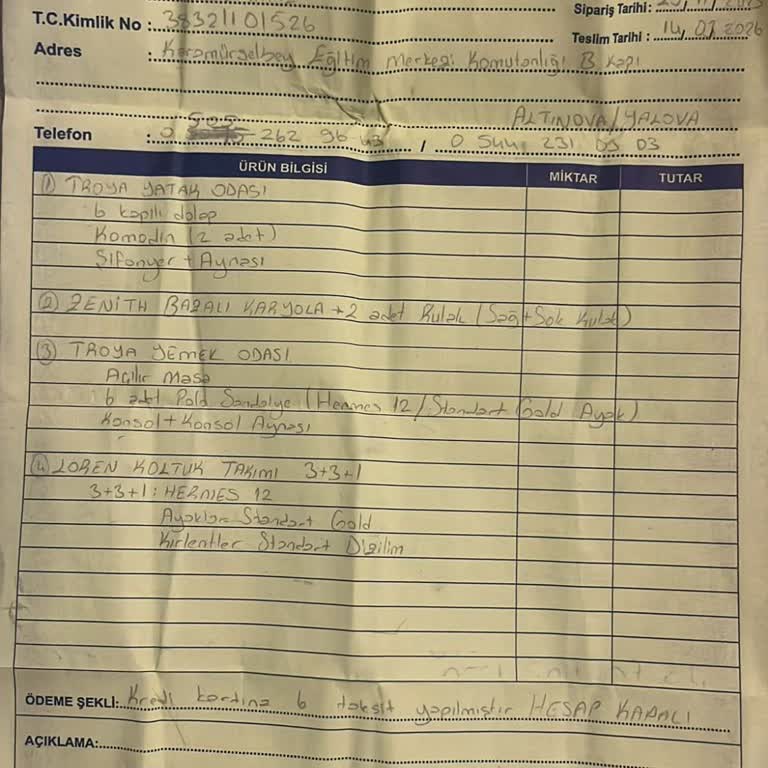 Sipariş Tarihi:
T.C.Kimlik No : 38321101526
Teslim Tarihi : 14,01.2026
Adres : Karamürselbey Eğitim Merkezi Komutanlığı B kapı
ALTINOVA/YALOVA
Telefon : 0 505 262 96 43 / 0 544 231 05 03
ÜRÜN BİLGİSİ MİKTAR TUTAR
1) TROYA YATAK ODASI
6 kapılı dolap
Komodin (2 adet)
Şifonyer + Aynası
2) ZENİTH BAZALI KARYOLA + 2 adet Kulak (Sağ+Sol Kulak)
3) TROYA YEMEK ODASI
Açılır Masa
6 adet Pold Sandalye (Hermes 12/Standart Gold Ayak)
Konsol + Konsol Aynası
4) LOREN KOLTUK TAKIMI 3+3+1
3+3+1 : HERMES 12
Ayaklar Standart Gold
Kırlentler Standart Dizilim
ÖDEME ŞEKLİ: Kredi kartına 6 taksit yapılmıştır HESAP KAPALI
AÇIKLAMA: